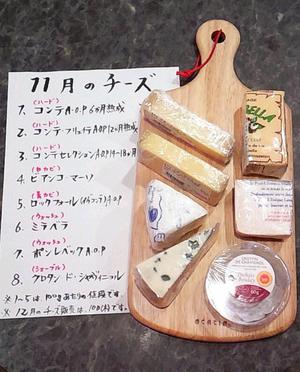 11月のチーズ
(ハード)
1. コンテA.O.P 6ヵ月熟成
(ハード)
2. コンテ・フリュイテA.O.P 12ヶ月熟成
(ハード)
3. コンテセレクションA.O.P 14〜18ヶ月
(白カビ)
4. ビアンコ マーゾ
(青カビ)
5. ロックフォール A.O.P
(ウォッシュ)
6. ミラベラ
(ウォッシュ)
7. ポンレベックA.O.P
(シェーブル)
8. クロタン ド・シャヴィニョル
※1〜5は、100gあたりの値段です。
※12月のチーズ販売は、です。
ELLA
CROTTIN DE CHAVIGNOL
acacia